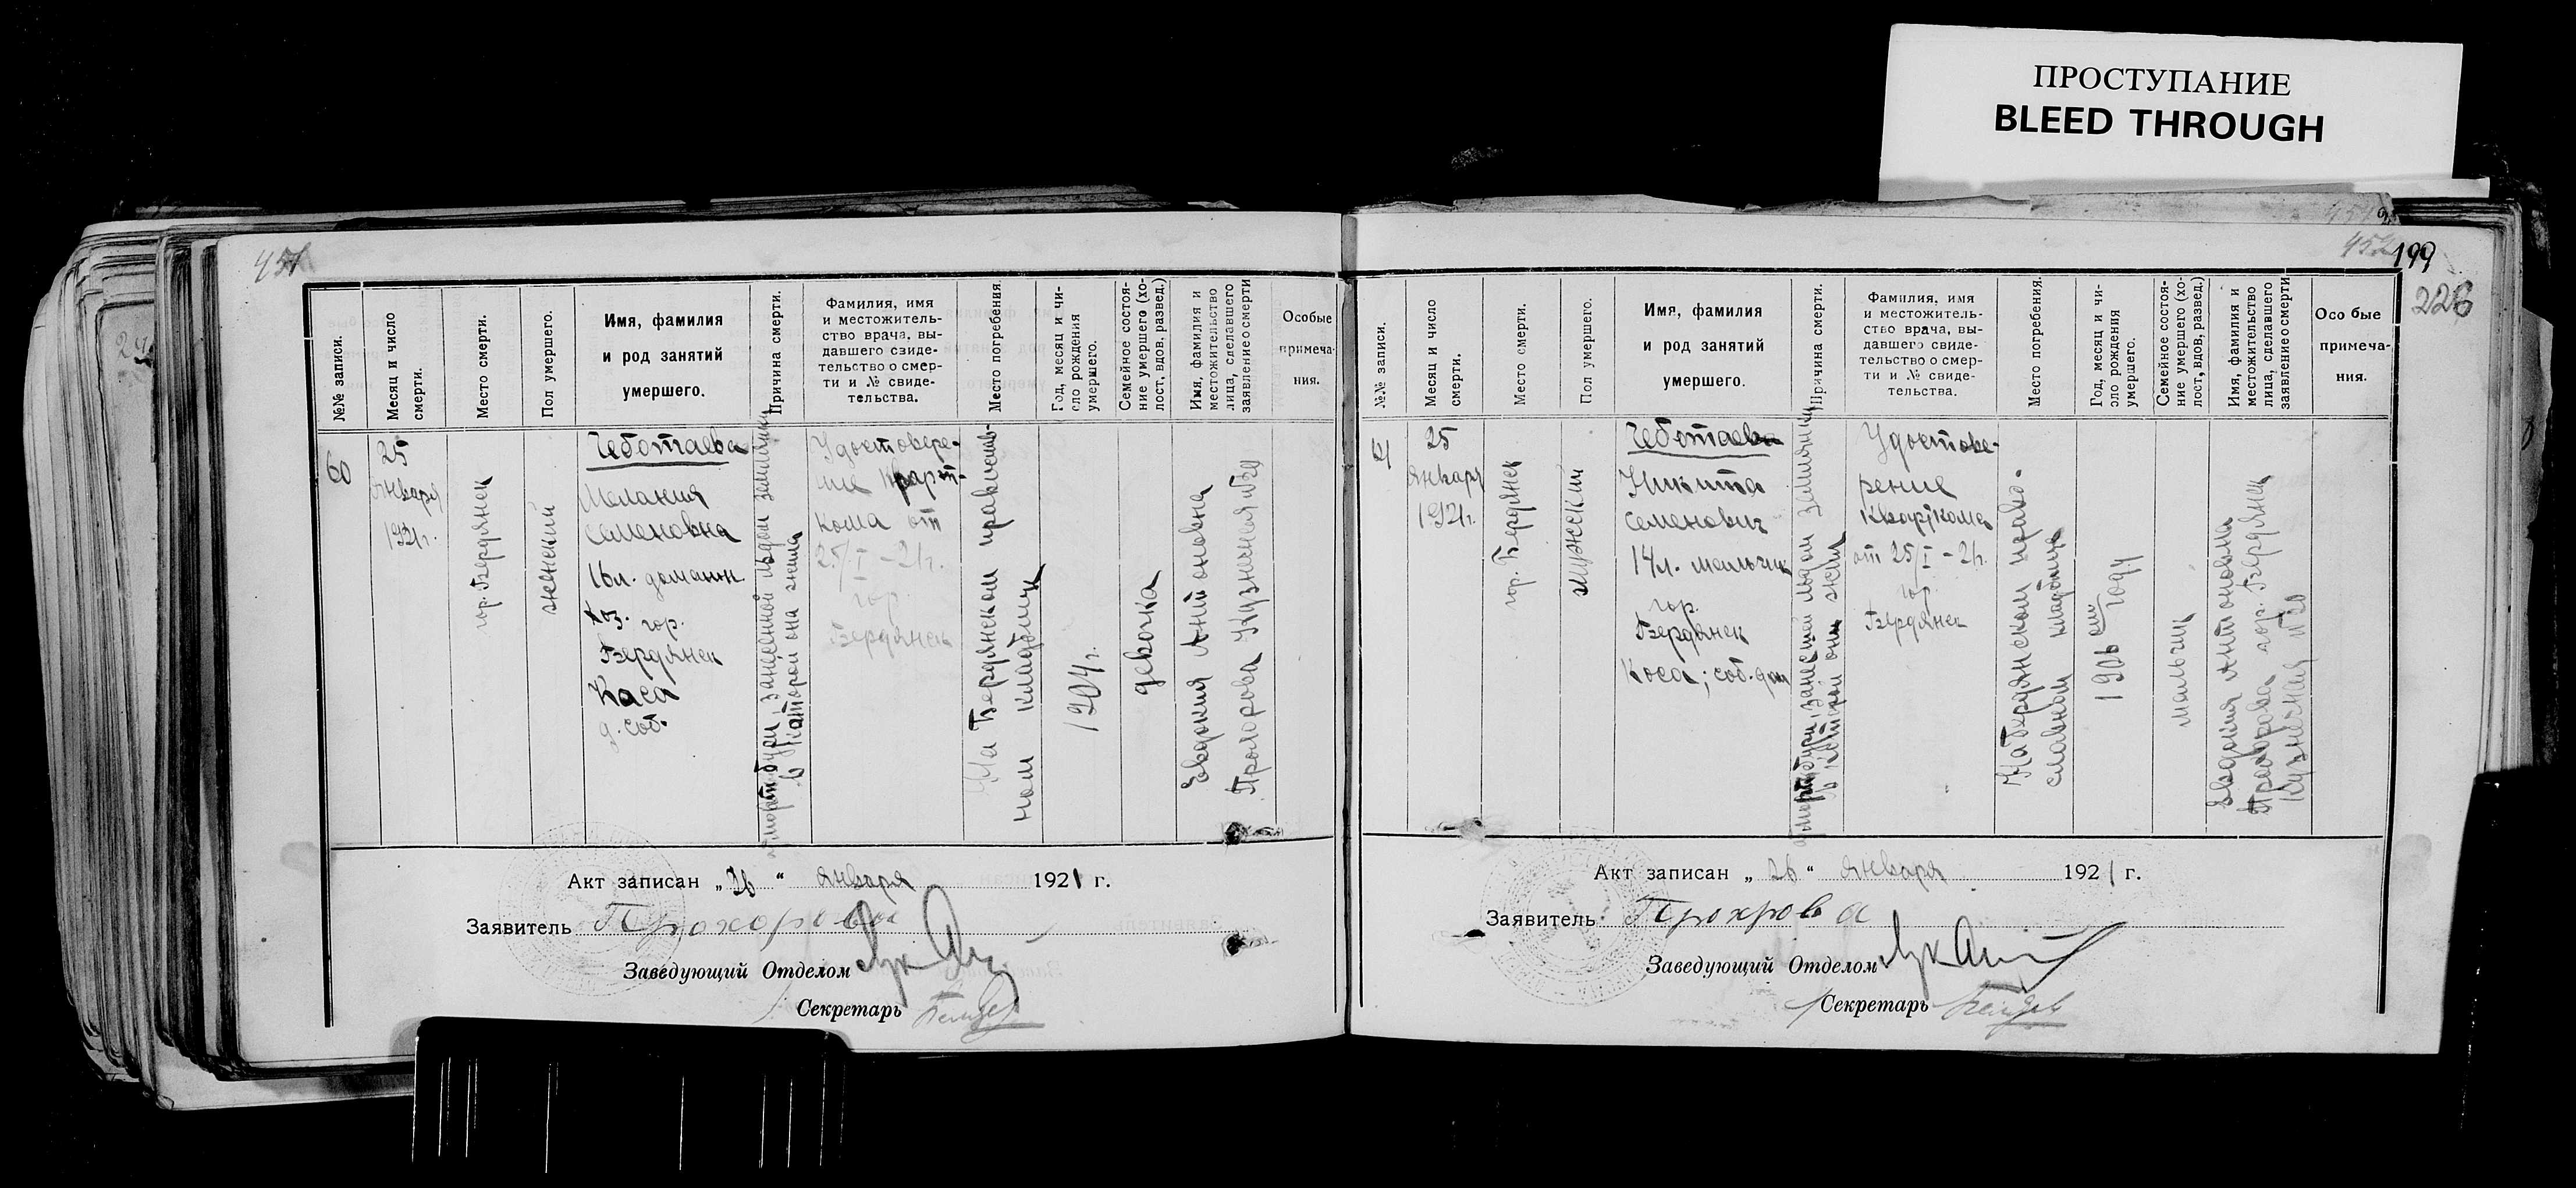 ПРОСТУПАНИЕ
BLEED THROUGH
451
№№ записи.
Месяц и число
смерти.
Место смерти.
Пол умершего.
Имя, фамилия
и род занятий
умершего.
Причина смерти.
Фамилия, имя
и местожитель-
ство врача, вы-
давшего свиде-
тельство о смер-
ти и № свиде-
тельства.
Место погребения.
Год, месяц и чи-
сло рождения
умершего.
Семейное состоя-
ние умершего (хо-
лост, вдов, развед.)
Имя, фамилия и
местожительство
лица, сделавшего
заявление о смерти
Особые
примеча-
ния.
60
25
января
1921г.
гор. Бердянск
женский
Чеботаева
Мелания
Семеновна
16л. домашн.
хоз. гор.
Бердянск
Каса
д. соб.
от бури, занесенной льдом землянки
в каторой она жила
Удостовере-
ние Кварт-
кома от
25/I-21г.
гор.
Бердянск
На Бердянском православ-
ном кладбищ
1904г.
девочка
Евдокия Антоновна
Прохорова Кузнечная №20
Акт записан „26“ января 1921 г.
Заявитель Прохорова
Заведующий Отделом
Секретарь
452
199
226
№№ записи.
Месяц и число
смерти.
Место смерти.
Пол умершего.
Имя, фамилия
и род занятий
умершего.
Причина смерти.
Фамилия, имя
и местожитель-
ство врача, вы-
давшего свиде-
тельство о смер-
ти и № свиде-
тельства.
Место погребения.
Год, месяц и чи-
сло рождения
умершего.
Семейное состоя-
ние умершего (хо-
лост, вдов, развед.)
Имя, фамилия и
местожительство
лица, сделавшего
заявление о смерти
Осо бые
примеча-
ния.
61
25
январ
1921г.
гор. Бердянск
мужский
Чеботаева
Никита
Семенович
14л. мальчик
гор.
Бердянск
Коса; соб. дом
от бури, занесшей льдом землянки
в которой они жил
Удостове-
рение
Кварткома
от 25/I-21г.
гор.
Бердянск
На Бердянском право-
славном кладбище
1906 ом году
мальчик
Евдокия Антоновна
Прохорова гор. Бердянск
Кузнечная №20
Акт записан „26“ января 1921 г.
Заявитель Прохрова
Заведующий Отделом
Секретарь